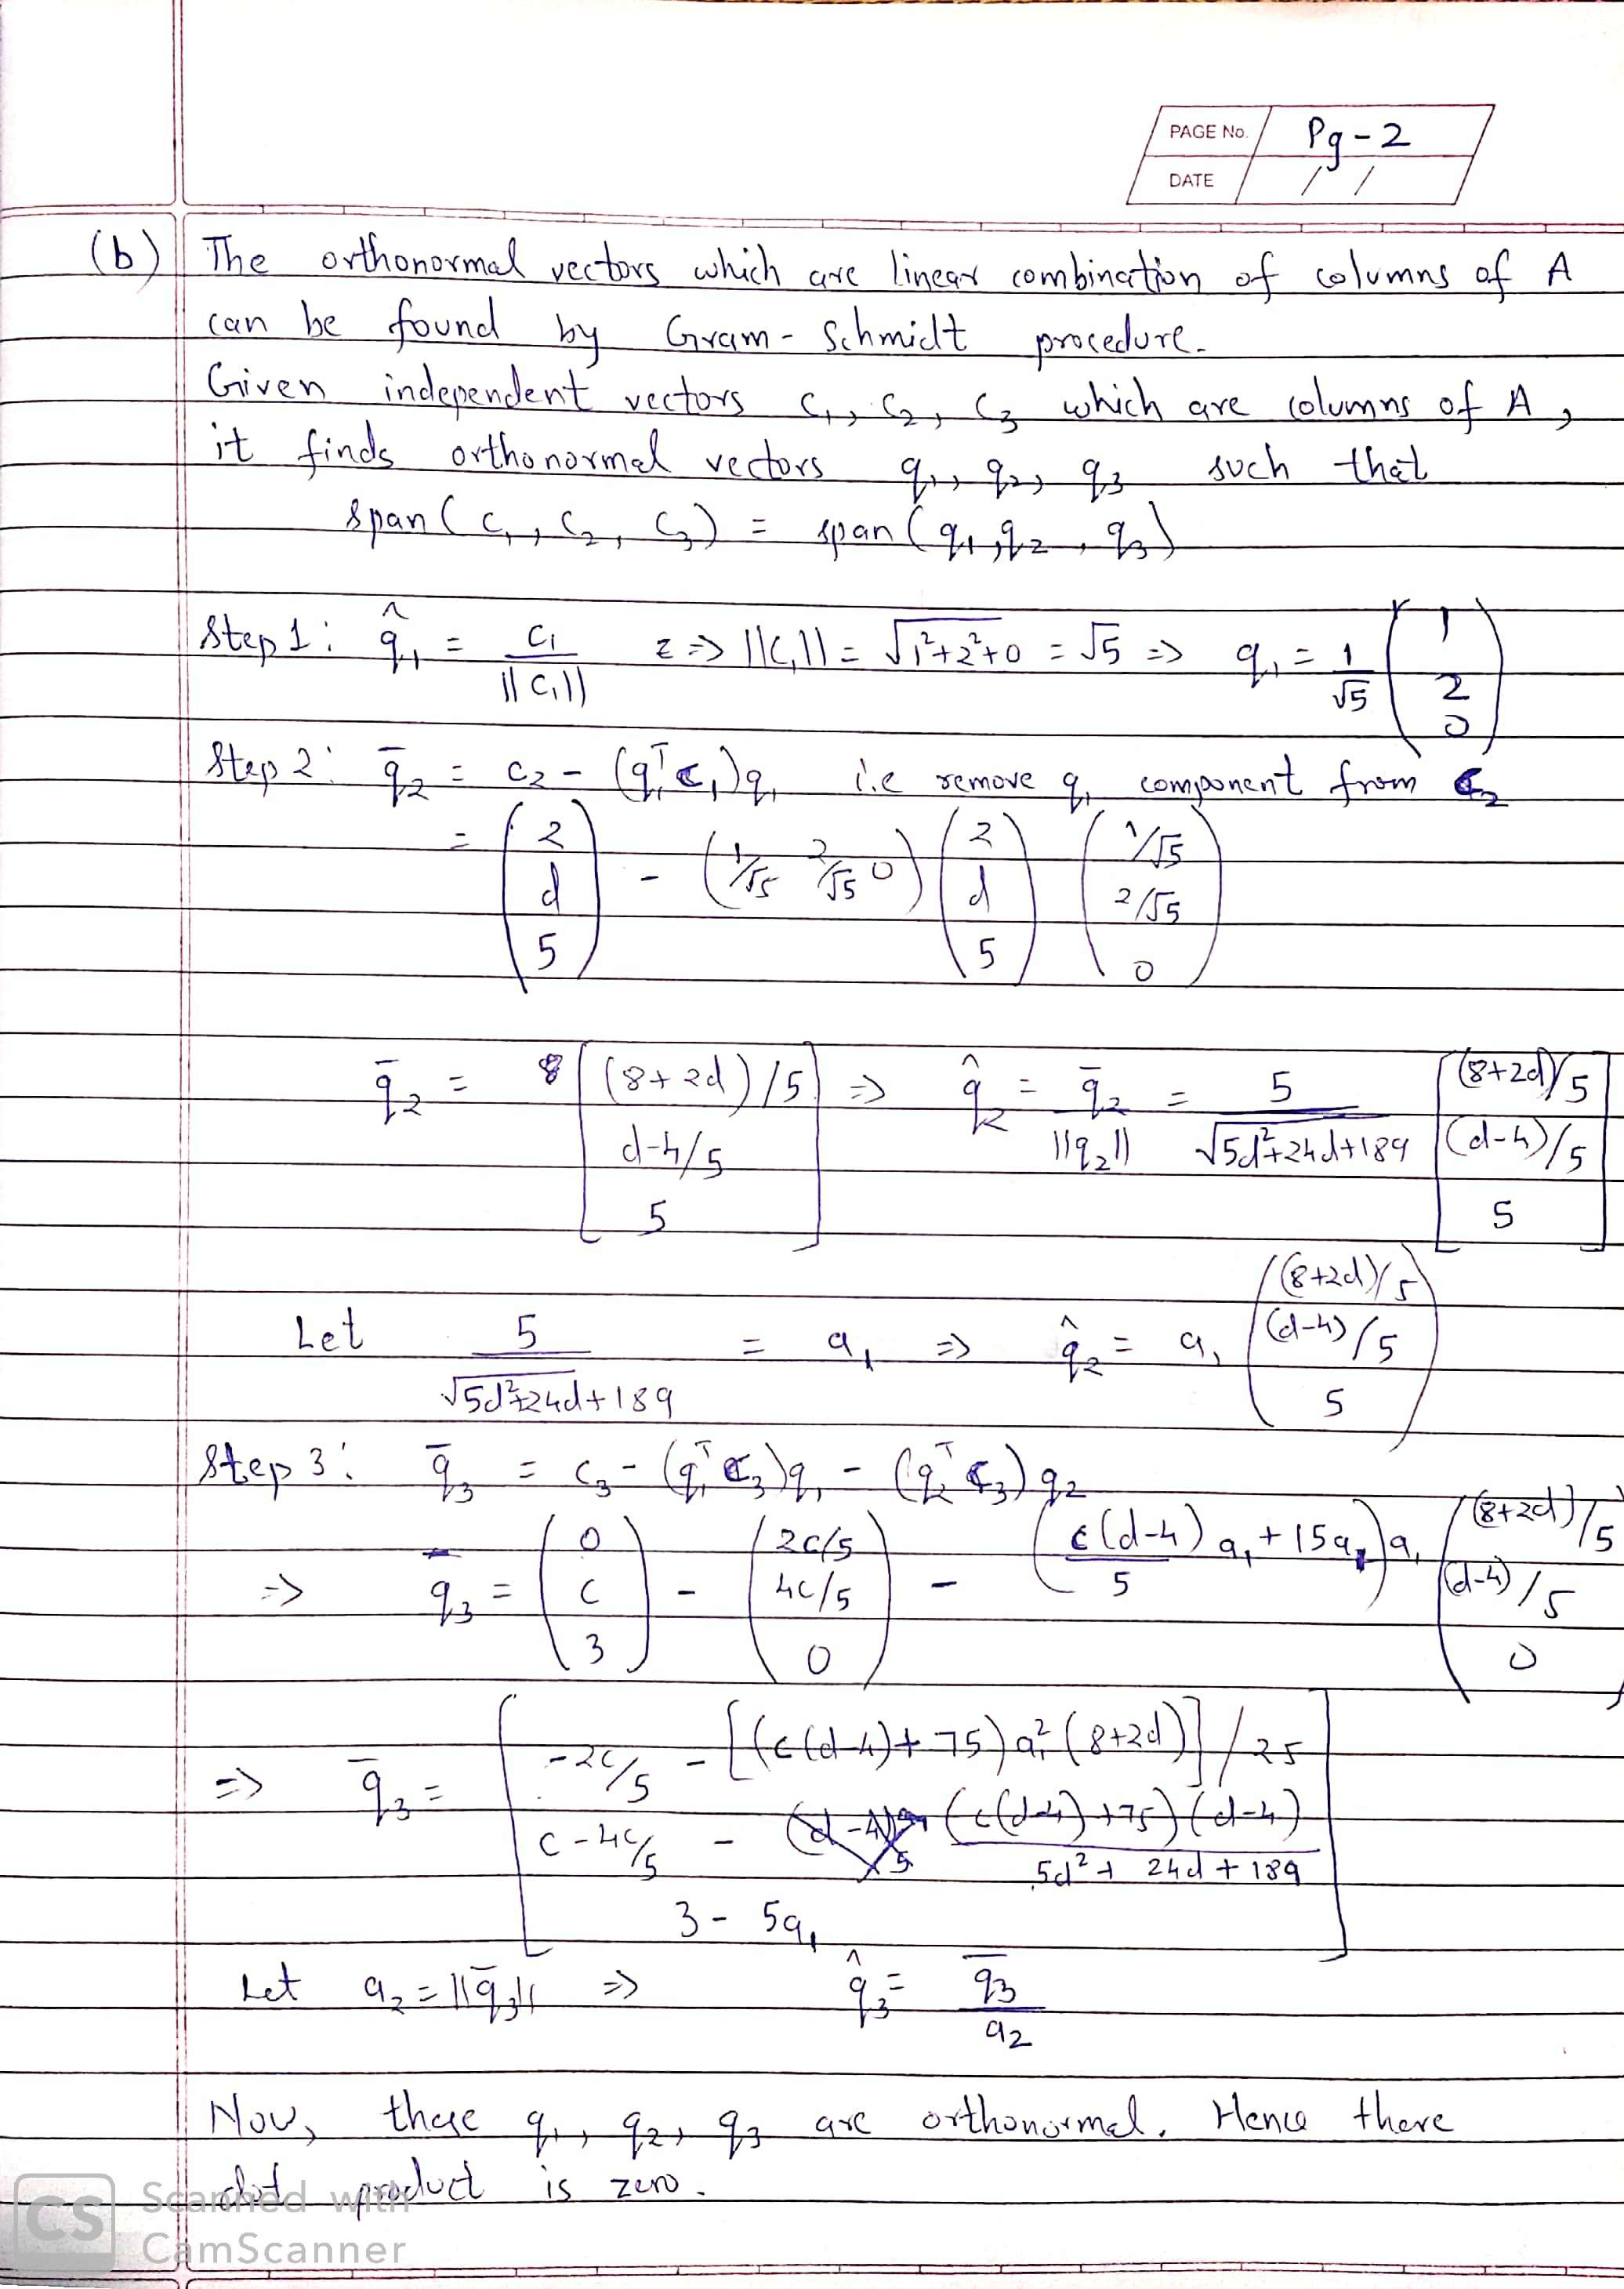 PAGE No. Pg-2
DATE / /
(b) The orthonormal vectors which are linear combination of columns of A
can be found by Gram-Schmidt procedure.
Given independent vectors c₁, c₂, c₃ which are columns of A,
it finds orthonormal vectors q₁, q₂, q₃ such that
span(c₁, c₂, c₃) = span(q₁, q₂, q₃)
Step 1: q̂₁ = c₁/||c₁|| z => ||c₁|| = √(1²+2²+0) = √5 => q₁ = 1/√5 (1 2 0)
Step 2: q̄₂ = c₂ - (q₁ᵀc₁)q₁ i.e remove q₁ component from c₂
= (2 d 5) - (1/√5 2/√5 0) (2 d 5) (1/√5 2/√5 0)
q̄₂ = [(8+2d)/5 d-4/5 5] => q̂₂ = q̄₂/||q₂|| = 5/√(5d²+24d+189) [(8+2d)/5 (d-4)/5 5]
Let 5/√(5d²+24d+189) = a₁ => q̂₂ = a₁ ((8+2d)/5 (d-4)/5 5)
Step 3: q̄₃ = c₃ - (q₁ᵀc₃)q₁ - (q₂ᵀc₃)q₂
=> q̄₃ = (0 c 3) - (2c/5 4c/5 0) - (c(d-4)/5 a₁ + 15a₁)a₁ ((8+2d)/5 (d-4)/5 0)
=> q̄₃ = [-2c/5 - [(c(d-4)+75)a₁²(8+2d)]/25
c-4c/5 - (c(d-4)+75)(d-4)/5d²+24d+189
3 - 5a₁]
Let a₂ = ||q̄₃|| => q̂₃ = q̄₃/a₂
Now, these q₁, q₂, q₃ are orthonormal. Hence there
dot product is zero.
CS Scanned with
CamScanner